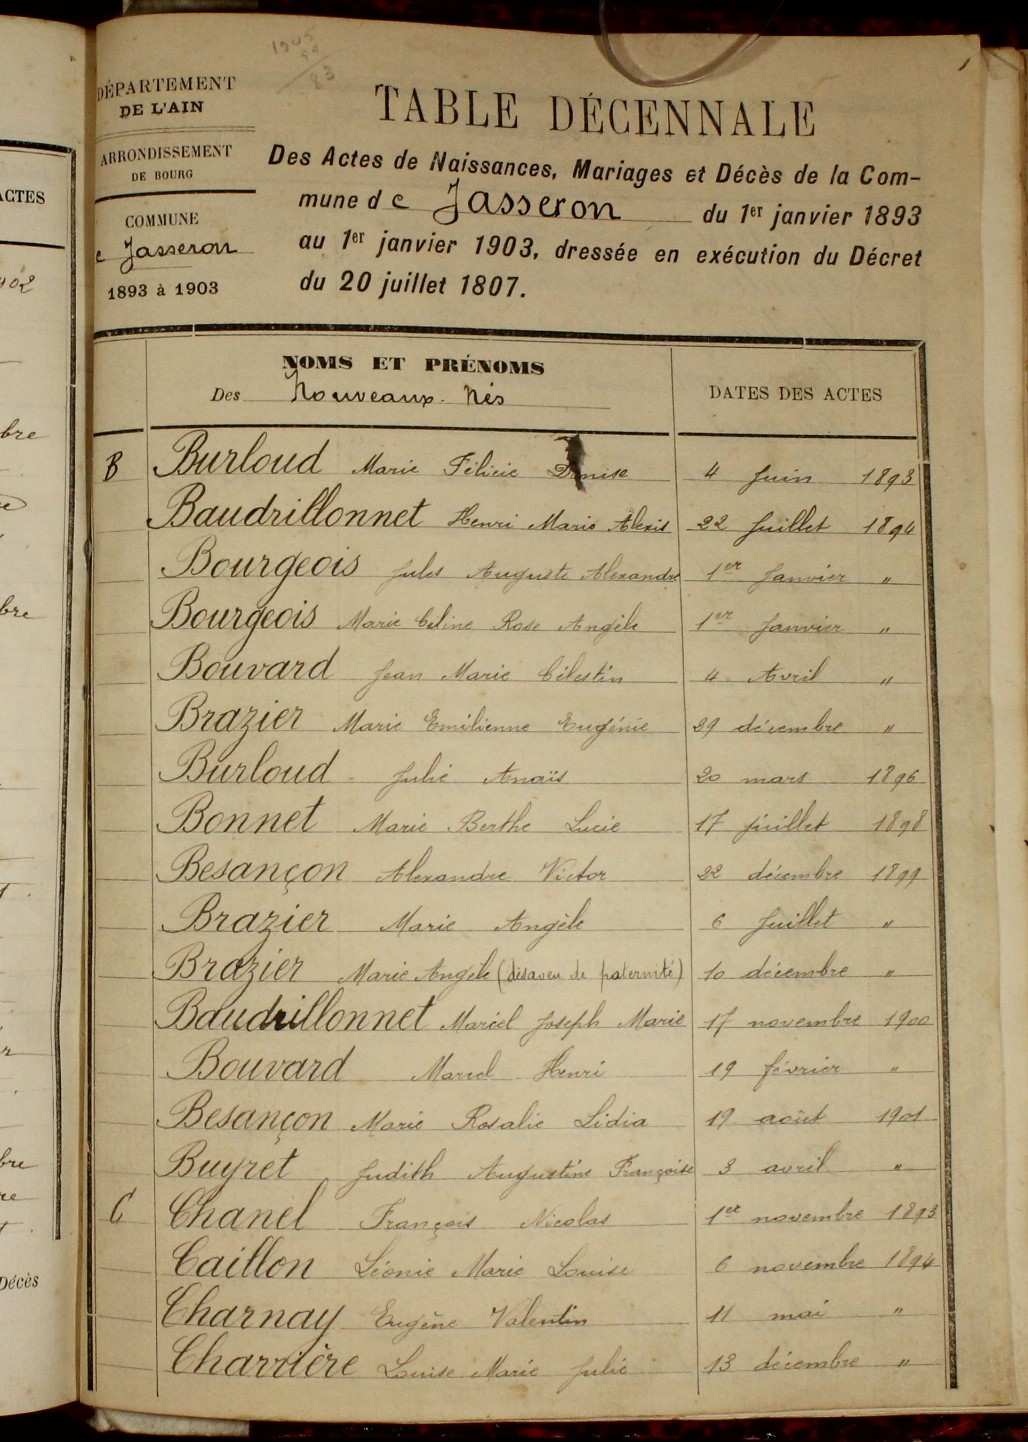 1905
83
1
DÉPARTEMENT
DE L'AIN
ARRONDISSEMENT
DE BOURG
COMMUNE
e Jasseron
1893 à 1903
TABLE DÉCENNALE
Des Actes de Naissances, Mariages et Décès de la Com-
mune de Jasseron du 1er janvier 1893
au 1er janvier 1903, dressée en exécution du Décret
du 20 juillet 1807.
NOMS ET PRÉNOMS
Des Nouveaux. Nés
DATES DES ACTES
B Burloud Marie Félicie Denise 4 Juin 1893
Baudrillonnet Henri Marie Alexis 22 Juillet 1894
Bourgeois Jules Auguste Alexandre 1er Janvier "
Bourgeois Marie Céline Rose Angèle 1er Janvier "
Bouvard Jean Marie Célestin 4 Avril "
Brazier Marie Emilienne Eugénie 29 décembre "
Burloud Julie Anaïs 20 mars 1896
Bonnet Marie Berthe Lucie 17 juillet 1898
Besançon Alexandre Victor 22 décembre 1899
Brazier Marie Angèle 6 Juillet "
Brazier Marie Angèle (désaveu de paternité) 10 décembre "
Baudrillonnet Marcel Joseph Marie 17 novembre 1900
Bouvard Marcel Henri 19 février "
Besançon Marie Rosalie Lidia 19 août 1901
Buyret Judith Augustine Françoise 3 avril "
C Chanel François Nicolas 1er novembre 1893
Caillon Léonie Marie Louise 6 novembre 1894
Charnay Eugène Valentin 11 mai "
Charrière Louise Marie Julie 13 décembre "
ACTES
bre
bre
bre
Décès